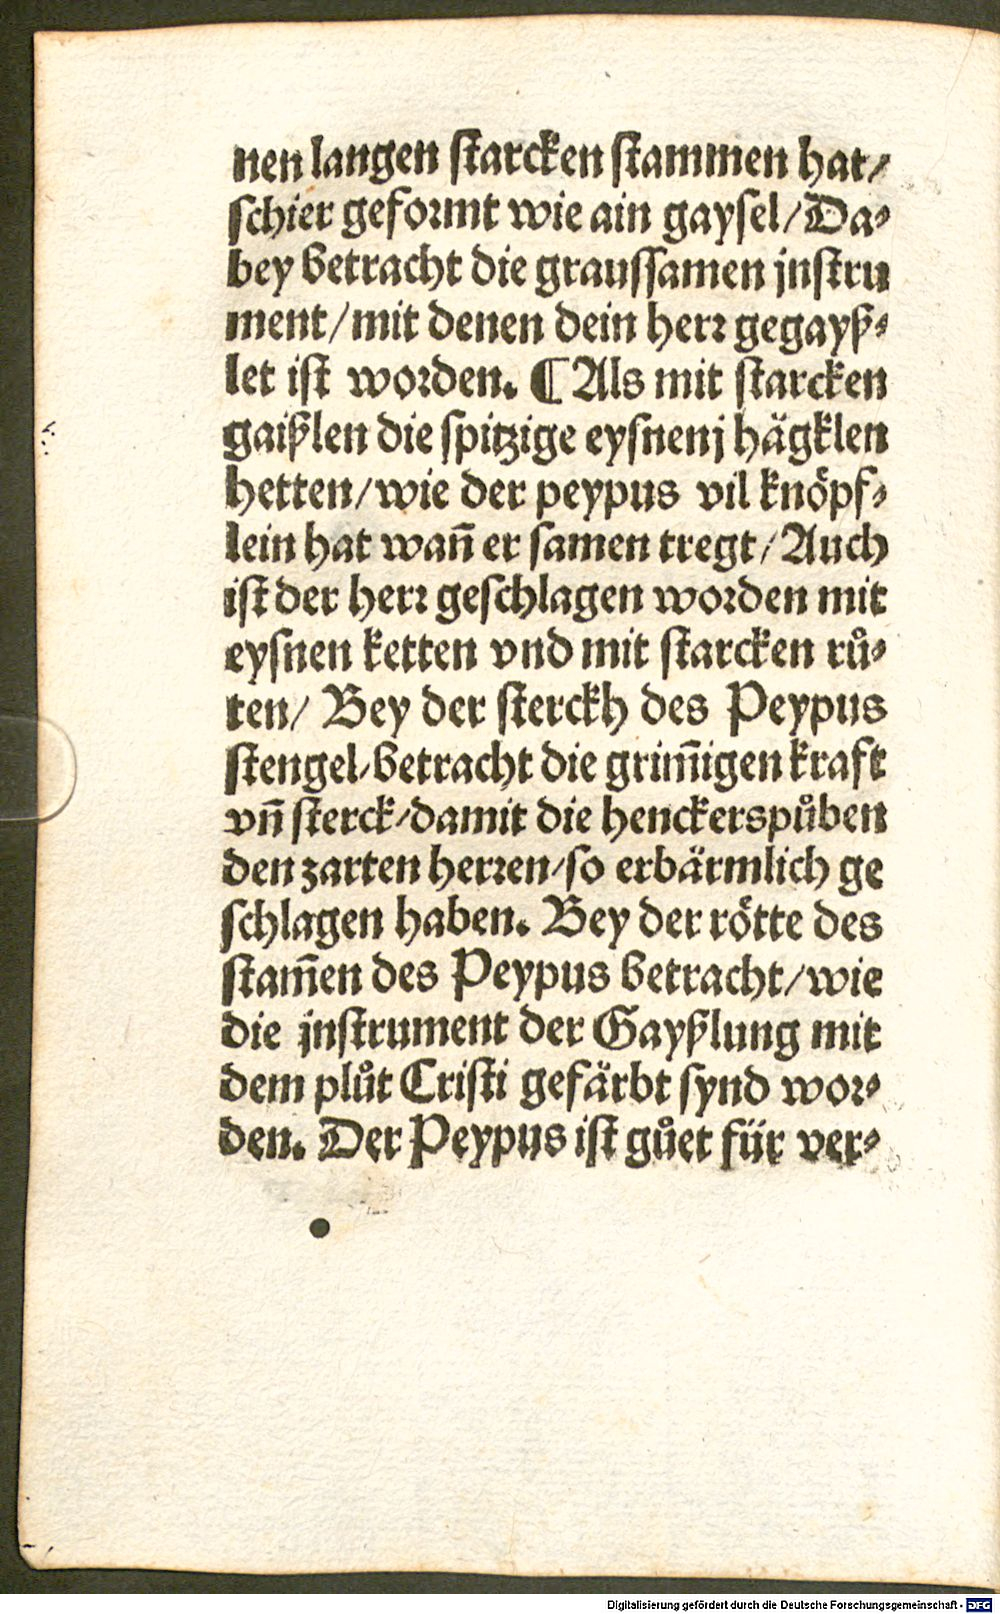 nen langen starcken stammen hat/
schier geformt wie ain gaysel/Da⸗
bey betracht die graussamen jnstru
ment/mit denen dein herr gegayß⸗
let ist worden. ¶ Als mit starcken
gaißlen die spitzige eysnenj hägklen
hetten/wie der peypus vil knöpf⸗
lein hat wañ er samen tregt/Auch
ist der herr geschlagen worden mit
eysnen ketten vnd mit starcken rů⸗
ten/ Bey der sterckh des Peypus
stengel/betracht die grim̃igen kraft
vñ sterck/damit die henckerspůben
den zarten herren/so erbärmlich ge
schlagen haben. Bey der rötte des
stam̃en des Peypus betracht/wie
die jnstrument der Gayßlung mit
dem plůt Cristi gefärbt synd wor⸗
den. Der Peypus ist gůet für ver⸗
Digitalisierung gefördert durch die Deutsche Forschungsgemeinschaft - DFG